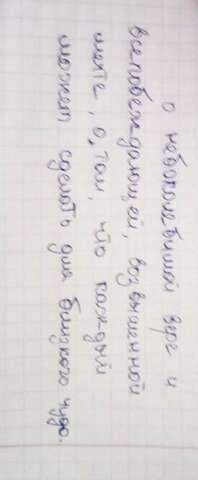 о непоколебимой вере и
всепобеждающей, возвышенной
мечте, о том, что каждый
может сделать для близкого чудо.